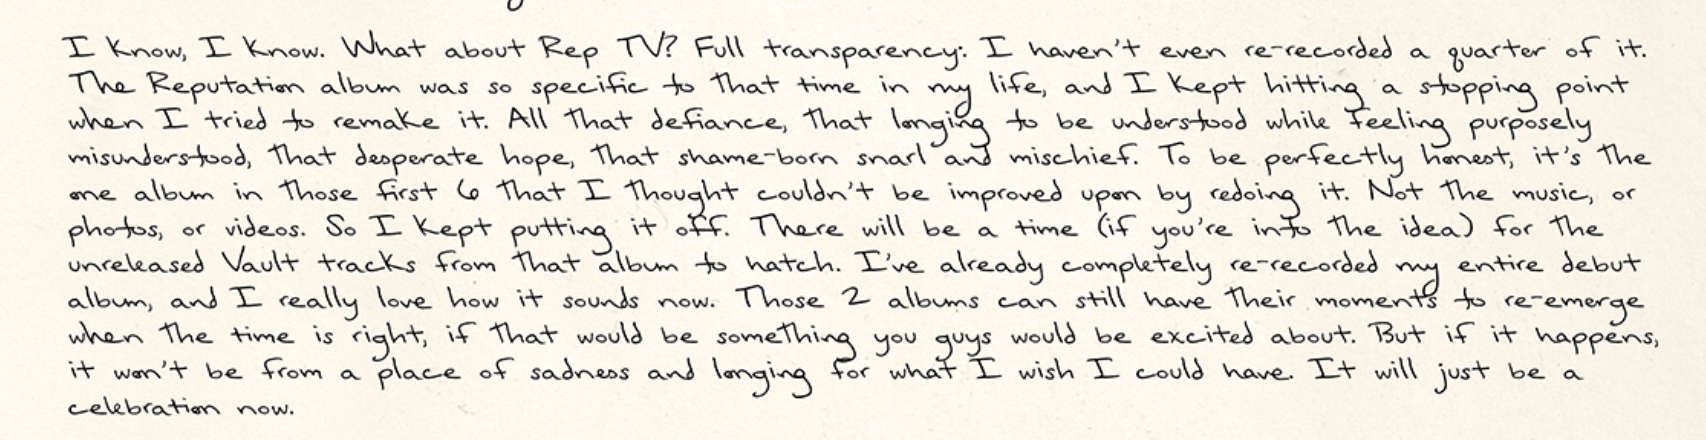 I know, I know. What about Rep TV? Full transparency: I haven't even re-recorded a quarter of it.
The Reputation album was so specific to that time in my life, and I kept hitting a stopping point
when I tried to remake it. All that defiance, that longing to be understood while feeling purposely
misunderstood, that desperate hope, that shame-born snarl and mischief. To be perfectly honest, it's the
one album in those first 6 that I thought couldn't be improved upon by redoing it. Not the music, or
photos, or videos. So I kept putting it off. There will be a time (if you're into the idea) for the
unreleased Vault tracks from that album to hatch. I've already completely re-recorded my entire debut
album, and I really love how it sounds now. Those 2 albums can still have their moments to re-emerge
when the time is right, if that would be something you guys would be excited about. But if it happens,
it won't be from a place of sadness and longing for what I wish I could have. It will just be a
celebration now.